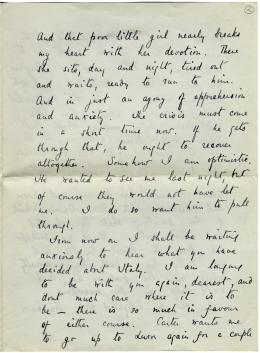 ②
And that poor little girl nearly breaks
my heart with her devotion. There
she sits, day and night, tired out
and waits, ready to run to him.
And in just an agony of apprehension
and anxiety. The crisis must come
in a short time now. If he gets
through that, he ought to recover
altogether. Somehow I am optimistic.
He wanted to see me last night but
of course they would not have let
me. I do so want him to pull
through.
From now on I shall be waiting
anxiously to hear what you have
decided about Italy. I am longing
to be with you again, dearest, and
dont much care where it is to
be – there is so much in favour
of either course. Carter wants me
to go up to Luxor again for a couple